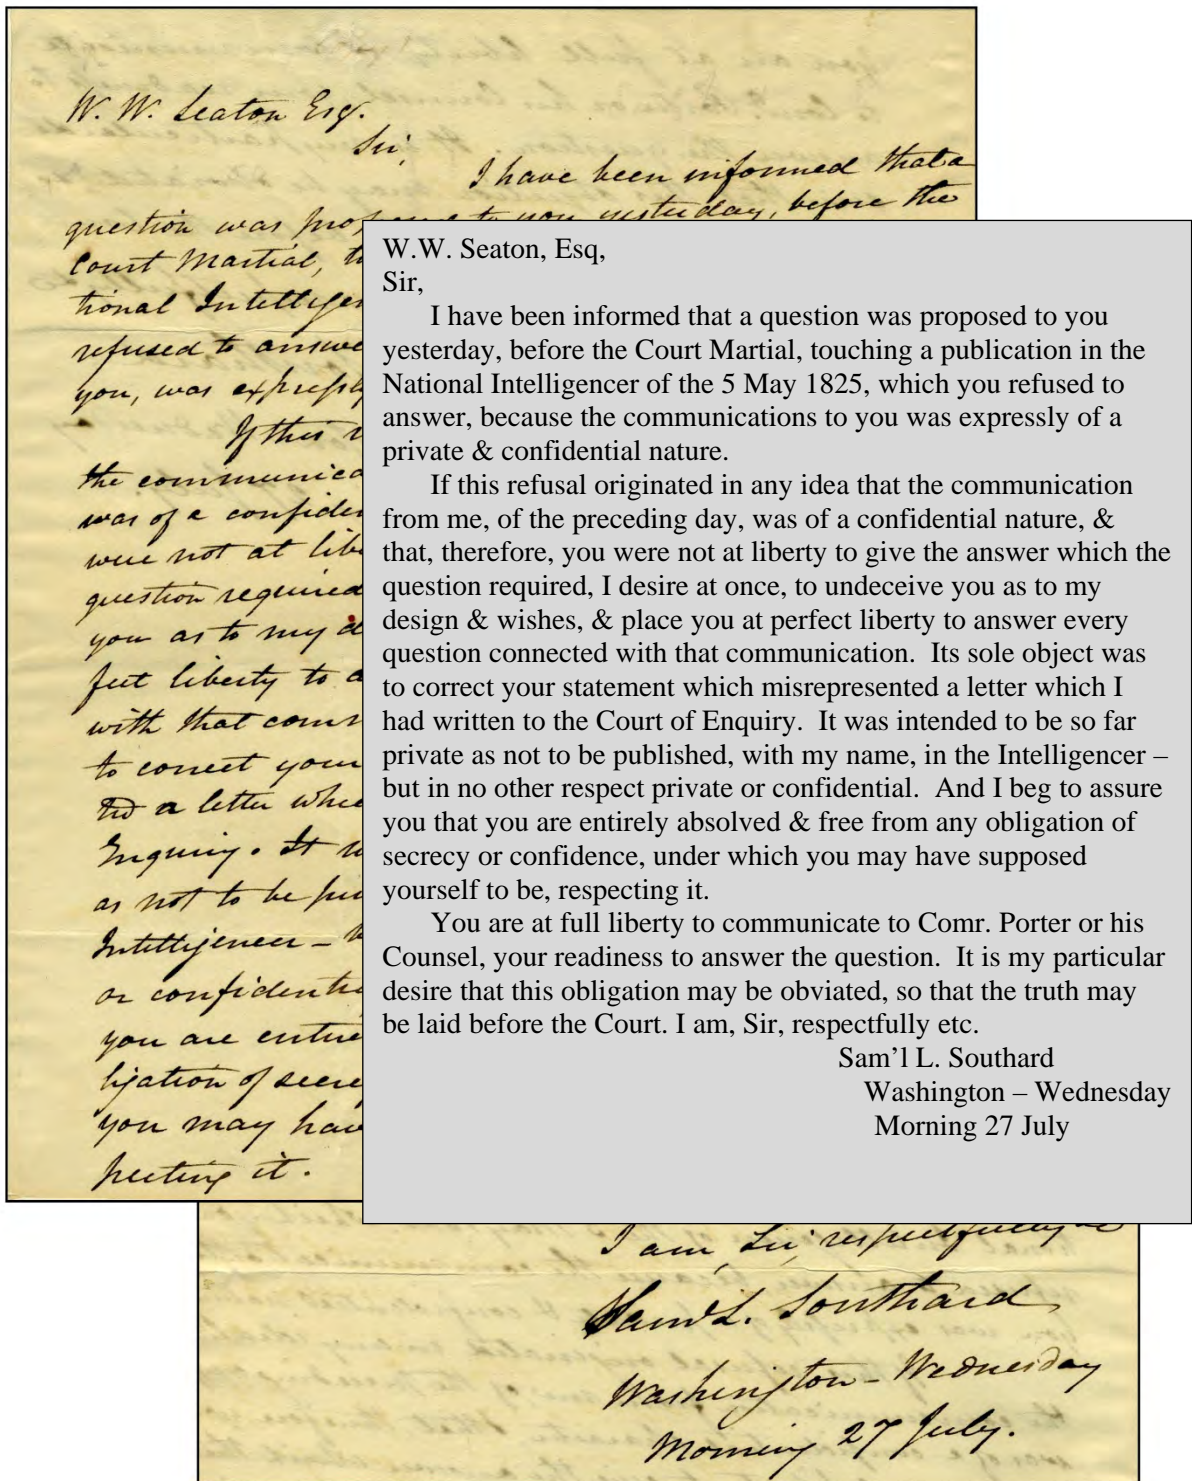 W. W. Seaton Esq.
Sir,
I have been informed that a
question was to you yesterday, before the
Court Martial,
tional
refused to
you, was
If this
the
was of a
were not at
question required
you as to my
fect liberty to
with that
to correct your
ted a letter
Enquiry. It
as not to be
Intelligencer –
or
you are
ligation of
you may
pecting it.
W.W. Seaton, Esq,
Sir,
I have been informed that a question was proposed to you
yesterday, before the Court Martial, touching a publication in the
National Intelligencer of the 5 May 1825, which you refused to
answer, because the communications to you was expressly of a
private & confidential nature.
If this refusal originated in any idea that the communication
from me, of the preceding day, was of a confidential nature, &
that, therefore, you were not at liberty to give the answer which the
question required, I desire at once, to undeceive you as to my
design & wishes, & place you at perfect liberty to answer every
question connected with that communication.  Its sole object was
to correct your statement which misrepresented a letter which I
had written to the Court of Enquiry.  It was intended to be so far
private as not to be published, with my name, in the Intelligencer –
but in no other respect private or confidential.  And I beg to assure
you that you are entirely absolved & free from any obligation of
secrecy or confidence, under which you may have supposed
yourself to be, respecting it.
You are at full liberty to communicate to Comr. Porter or his
Counsel, your readiness to answer the question.  It is my particular
desire that this obligation may be obviated, so that the truth may
be laid before the Court. I am, Sir, respectfully etc.
Sam’l L. Southard
Washington – Wednesday
Morning 27 July
I am, Sir, respectfully &c
Sam'l L. Southard
Washington – Wednesday
Morning 27 July.